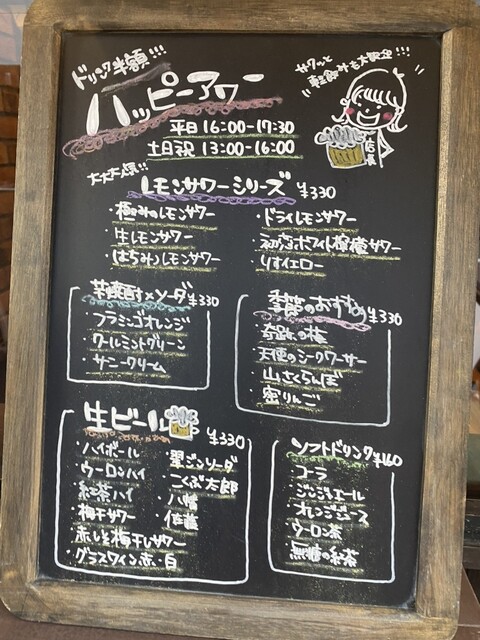 ドリンク半額!!!
ハッピーアワー
サクッと
軽飲みも大歓迎!!!
平日 16:00-17:30
土日祝 13:00-16:00
店長
レモンサワーシリーズ ¥330
・極みのレモンサワー
・生レモンサワー
・はちみつレモンサワー
・ドライレモンサワー
・初恋ホワイト檸檬サワー
・りすイエロー
芋焼酎×ソーダ ¥330
・フラミンゴオレンジ
・クールミントグリーン
・サニークリーム
季節のおすすめ ¥330
・奇跡の梅
・天使のシークワーサー
・山さくらんぼ
・蜜りんご
生ビール ¥330
・ハイボール
・ウーロンハイ
・紅茶ハイ
・梅干サワー
・赤しそ梅干しサワー
・グラスワイン赤・白
・翠ジンソーダ
・こくぶ太郎
・八幡
・佐藤
ソフトドリンク ¥160
・コーラ
・ジンジャエール
・オレンジジュース
・ウーロン茶
・無糖の紅茶